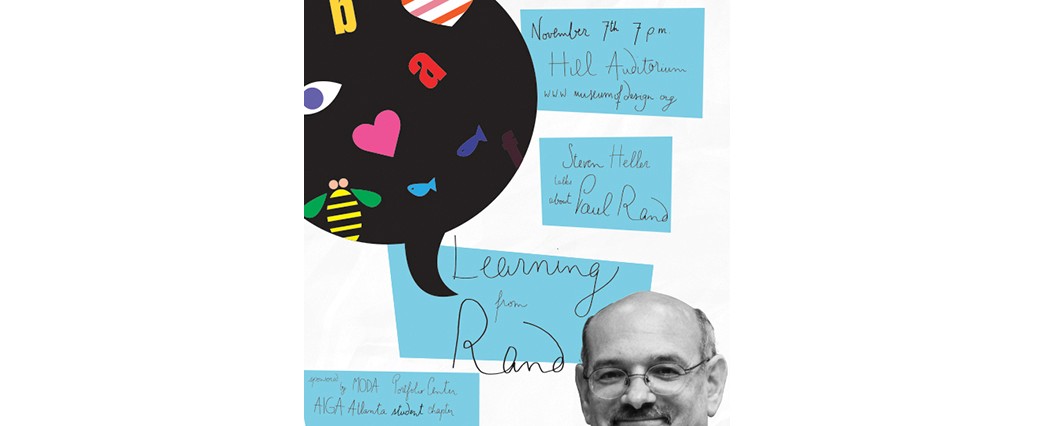 b
a
November 7th 7 pm.
Hill Auditorium
www museumofdesign.org
Steven Heller
talks
about Paul Rand
Learning
from
Rand
sponsored
by MODA Portfolio Center
AIGA Atlanta student chapter